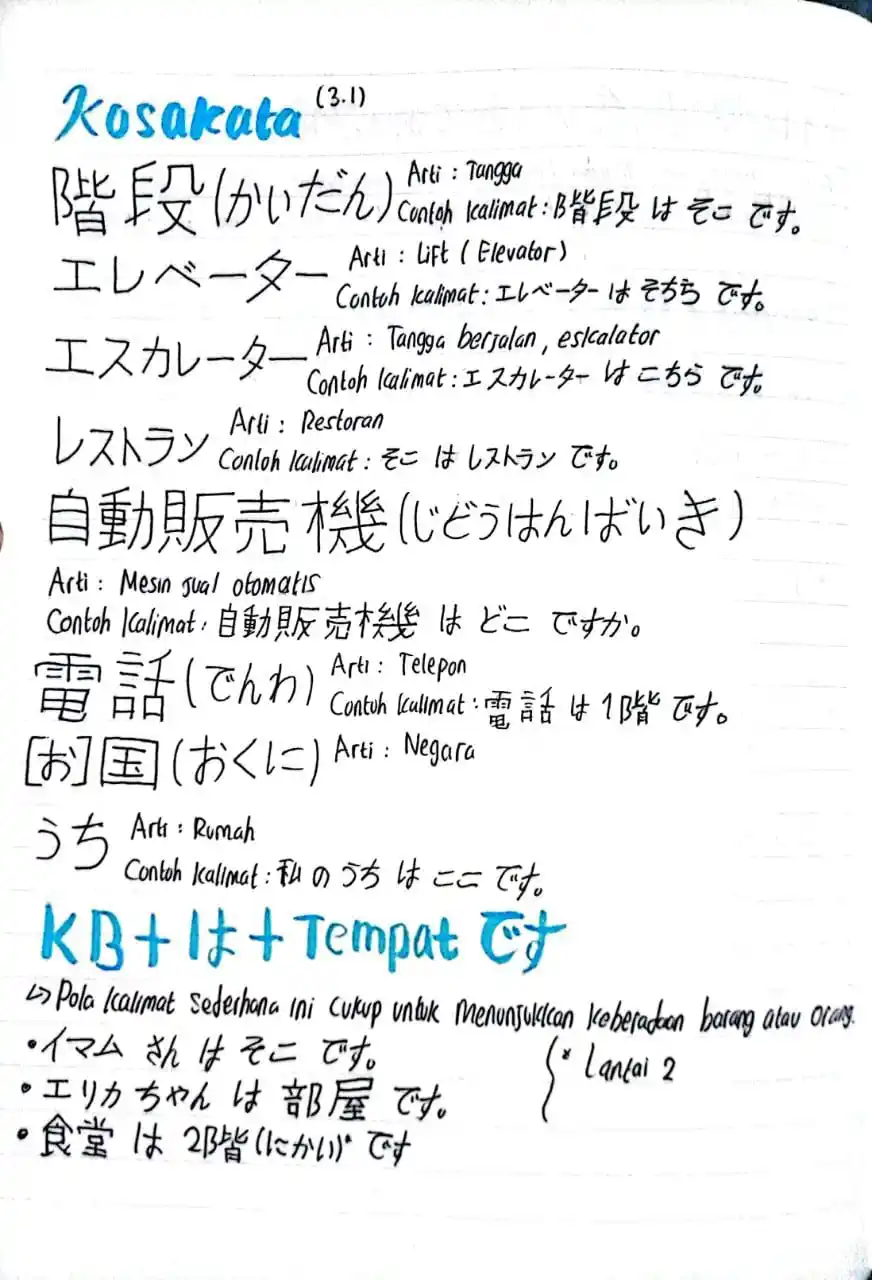 Kosakata (3.1)
階段(かいだん) Arti : Tangga
Contoh kalimat : 階段 は そこ です。
エレベーター Arti : Lift (Elevator)
Contoh kalimat : エレベーター は そちら です。
エスカレーター Arti : Tangga berjalan, eskalator
Contoh kalimat : エスカレーター は こちら です。
レストラン Arti : Restoran
Contoh kalimat : そこ は レストラン です。
自動販売機(じどうはんばいき)
Arti : Mesin jual otomatis
Contoh kalimat : 自動販売機 は どこ ですか。
電話(でんわ) Arti : Telepon
Contoh kalimat : 電話 は 1階 です。
[お]国(おくに) Arti : Negara
うち Arti : Rumah
Contoh kalimat : 私 の うち は ここ です。
KB + は + Tempat です
↳ Pola kalimat sederhana ini cukup untuk menunjukkan keberadaan barang atau orang.
• イマム さん は そこ です。
• エリカ ちゃん は 部屋 です。
• 食堂 は 2階(にかい)* です
* Lantai 2